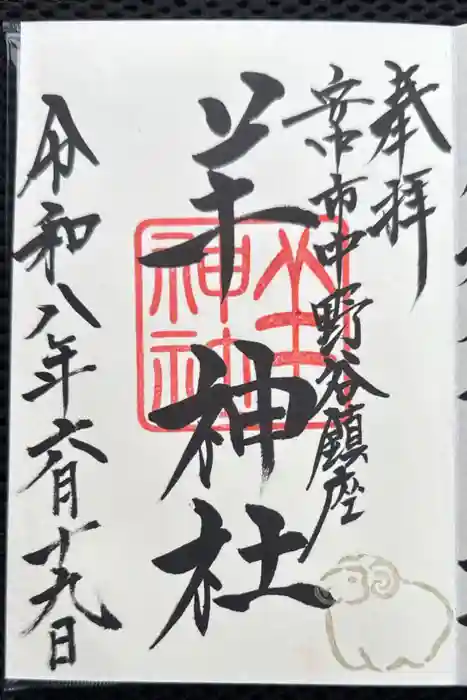 奉拝
安中市中野谷鎮座
羊神社
羊神社
令和八年六月十九日